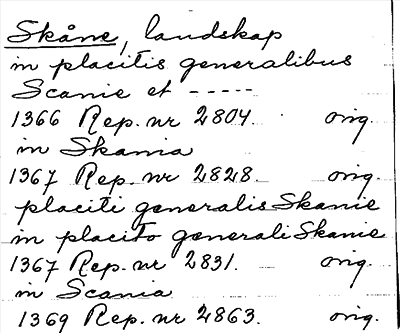 Skåne, landskap
in placitis generalibus
Scanie et -----
1366 Rep. nr 2804. orig.
in Skania
1367 Rep. nr 2828. orig.
placiti generalis Skanie
in placito generali Skanie
1367 Rep. nr 2831. orig.
in Scania
1369 Rep. nr 2863. orig.